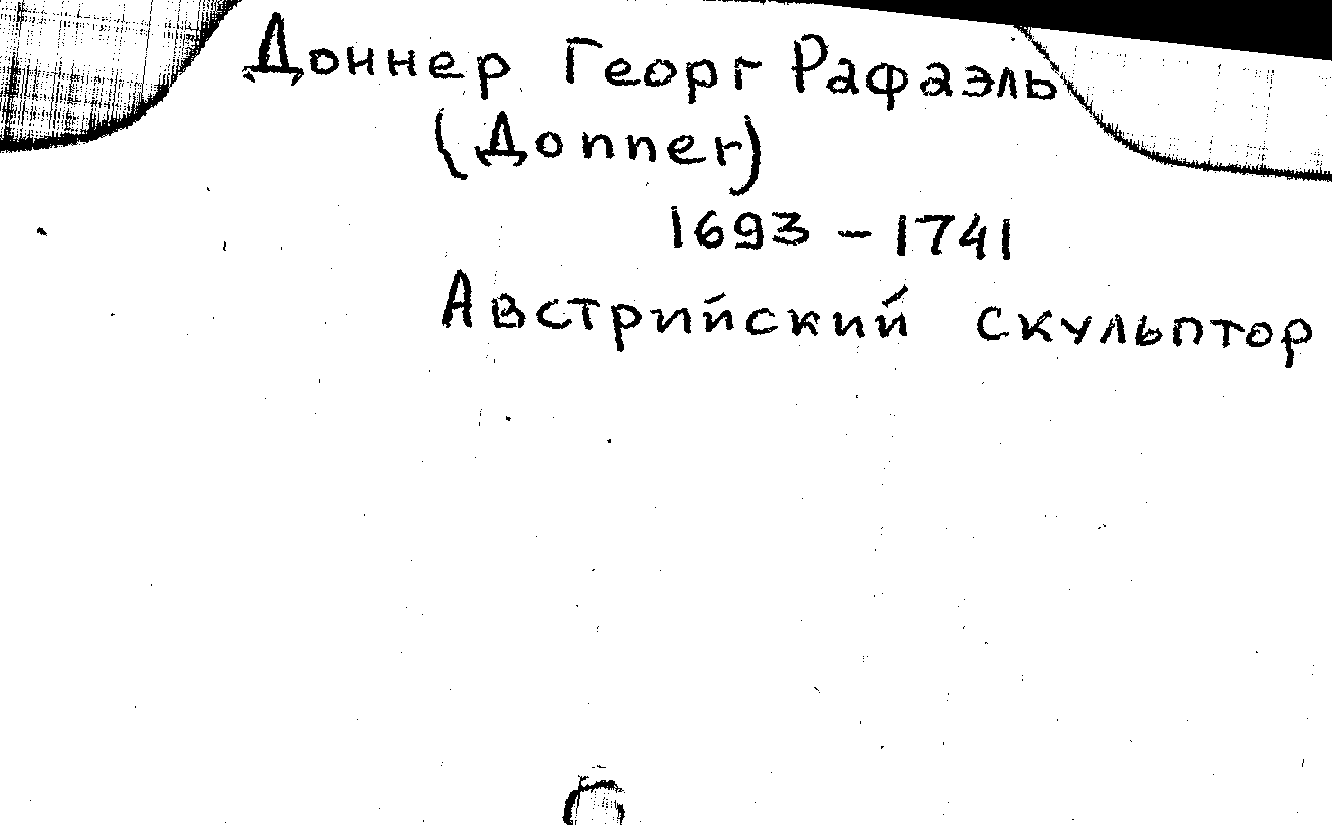 Доннер Георг Рафаэль
(Доnner)
1693 - 1741
Австрийский скульптор